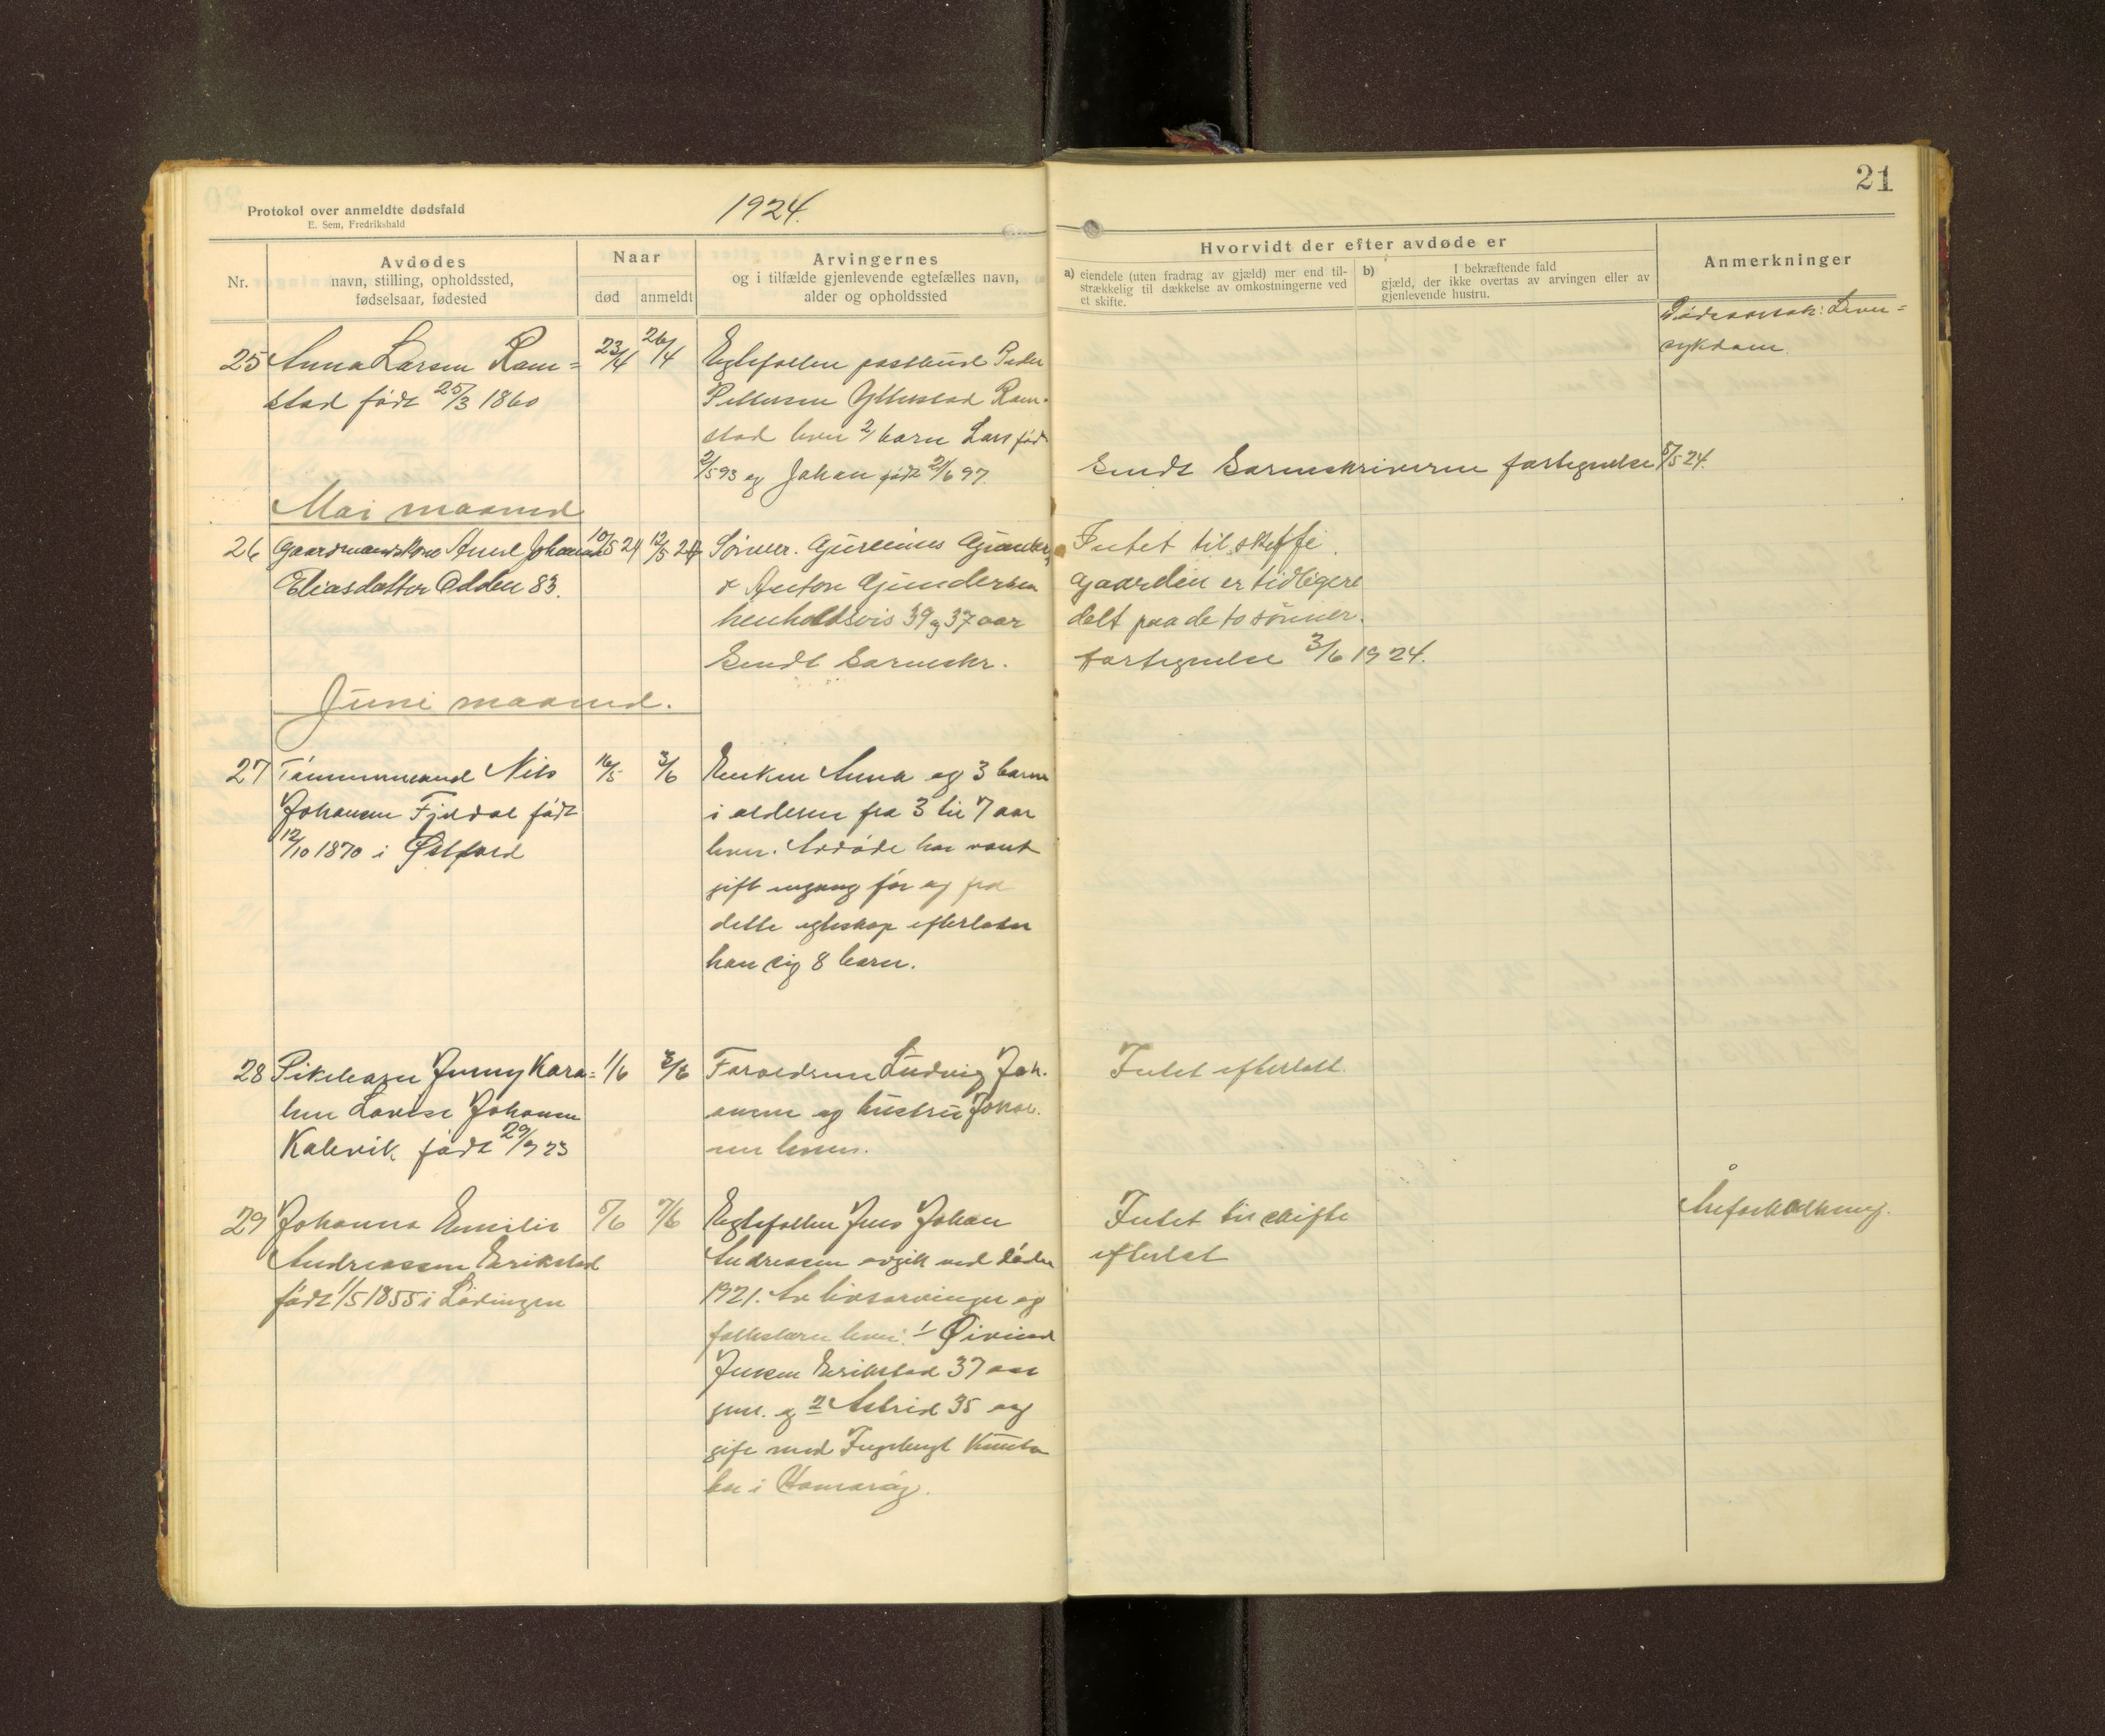 21
Protokol over anmeldte dødsfald
E. Sem, Fredrikshald
1924.
Nr.
Avdødes
navn, stilling, opholdssted,
fødselsaar, fødested
Naar
død
anmeldt
Arvingernes
og i tilfælde gjenlevende egtefælles navn,
alder og opholdssted
Hvorvidt der efter avdøde er
a) eiendele (uten fradrag av gjæld) mer end til-
strækkelig til dækkelse av omkostningerne ved
et skifte.
b) I bekræftende fald
gjæld, der ikke overtas av arvingen eller av
gjenlevende hustru.
Anmerkninger
25 Anna Larsen Ram=
stad født 25/3 1860
23/4
26/4
Egtefællen postbud Peder
Pettersen Ytterstad Ram-
stad lever 2 barn Lars født
2/5 93 og Johan født 2/6 97.
Dødsaarsak: Lever=
sykdom
Sendt Sorenskriveren fortegnelse 8/5 24.
Mai maaned
26 Gaardmandskone Anne Johanna
Eliasdatter Odden 83.
10/5 24
12/5 24
Sönner. Gurenius Gunders,
& Anton Gundersen
henholdsvis 39 og 37 aar
Sendt Sorenskr.
Intet til skifte.
Gaarden er tidligere
delt paa de to sönner.
fortegnelse 3/6 1924.
Juni maaned.
27 Tömmermand Nils
Johansen Fjeldal født
12/10 1870 i Østfold
16/5
3/6
Enken Anna og 3 barn
i alderen fra 3 til 7 aar
lever. Avdøde har vært
gift engang før og fra
dette egteskap efterlater
han sig 8 barn.
28 Pikebarn Jenny Kara=
line Lovise Johansen
Kalvik født 29/9 23
1/6
3/6
Foreldrene Ludvig Joh.
ansen og hustru Johan.
ne lever.
Intet efterlatt.
29 Johanna Emilie
Andreassen Erikstad
født 1/5 1855 i Lødingen
5/6
7/6
Egtefellen Jens Johan
Andreassen avgik ved døden
1921. Av livsarvinger og
fellesbarn lever: 1 Øivind
Jensen Erikstad 37 aar
gml. og 2 Astrid 35 og
gift med Ingebrigt Knutsen
i Hamarøy.
Intet til skifte
efterlat
Åreforkalkning.